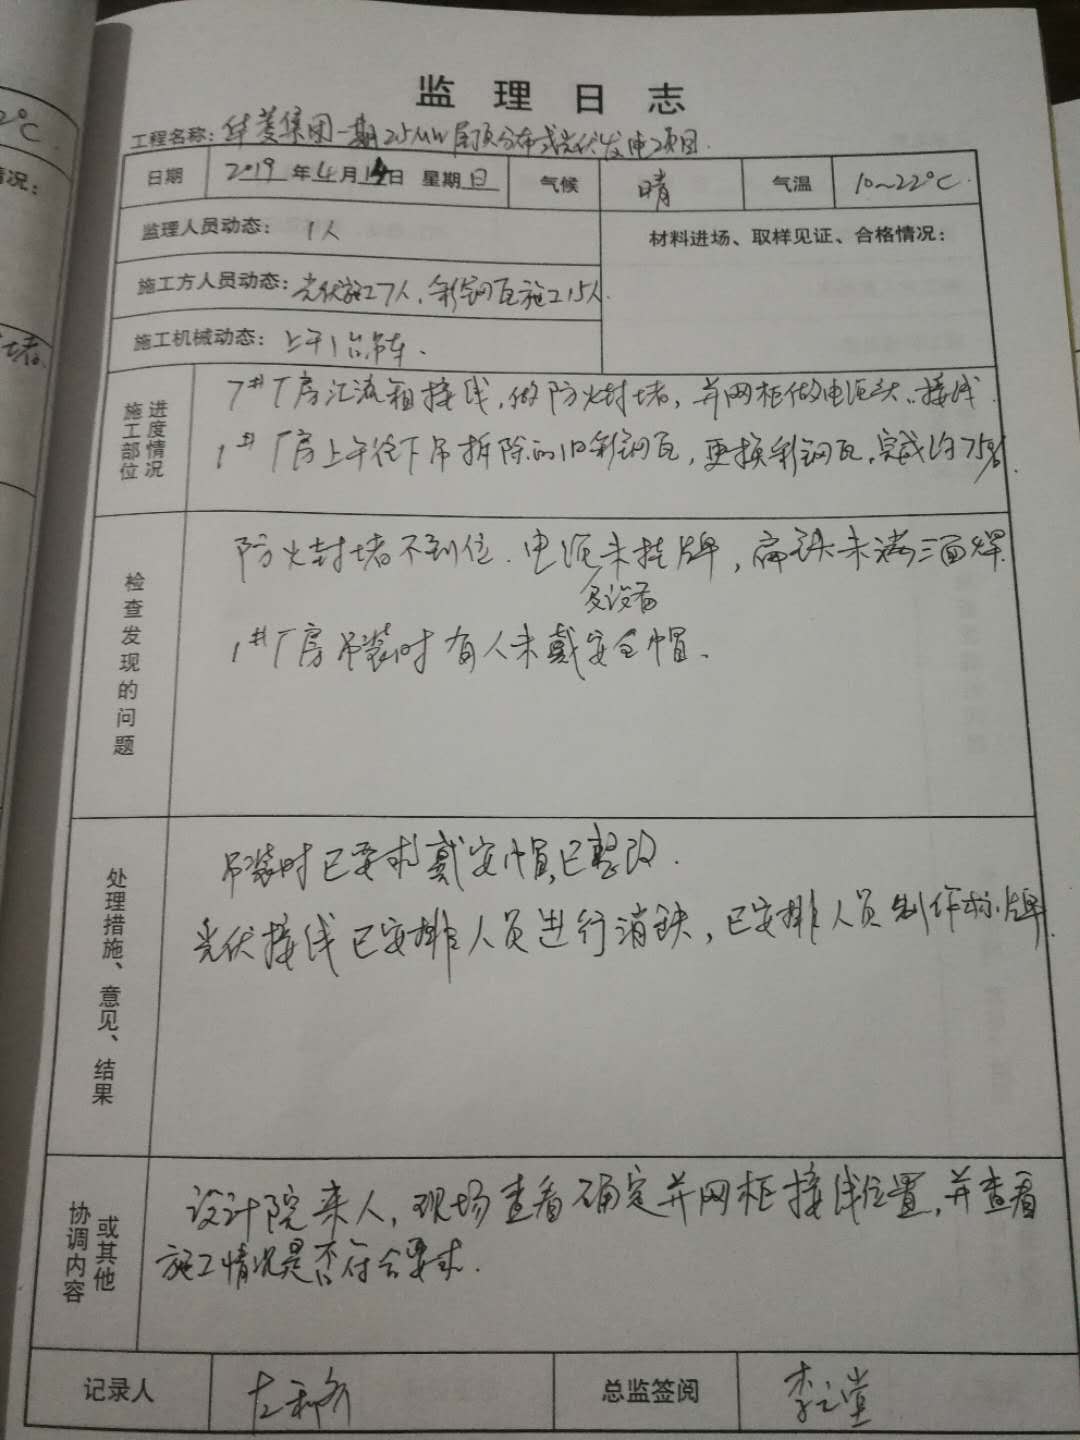 监理日志
工程名称：华菱集团一期25MW屋顶分布式光伏发电项目.
日期 2019年4月14日 星期日 气候 晴 气温 10~22℃.
监理人员动态： 1人 材料进场、取样见证、合格情况：
施工方人员动态：光伏施工7人，彩钢瓦施工15人.
施工机械动态：上午1台吊车.
施工部位进度情况
7#厂房汇流箱接线，做防火封堵，并网柜做电缆头、接线.
1#厂房上午往下吊拆除的旧彩钢瓦，更换彩钢瓦，完成约75%.
检查发现的问题
防火封堵不到位.电缆未挂牌，扁铁未满三面焊.
及设备
1#厂房吊装时有人未戴安全帽.
处理措施、意见、结果
吊装时已要求戴安帽，已整改.
光伏接线已安排人员进行消缺，已安排人员制作标牌.
协调内容或其他
设计院来人，现场查看确定并网柜接线位置，并查看
施工情况是否符合要求.
记录人 总监签阅
2℃
情况：
堵